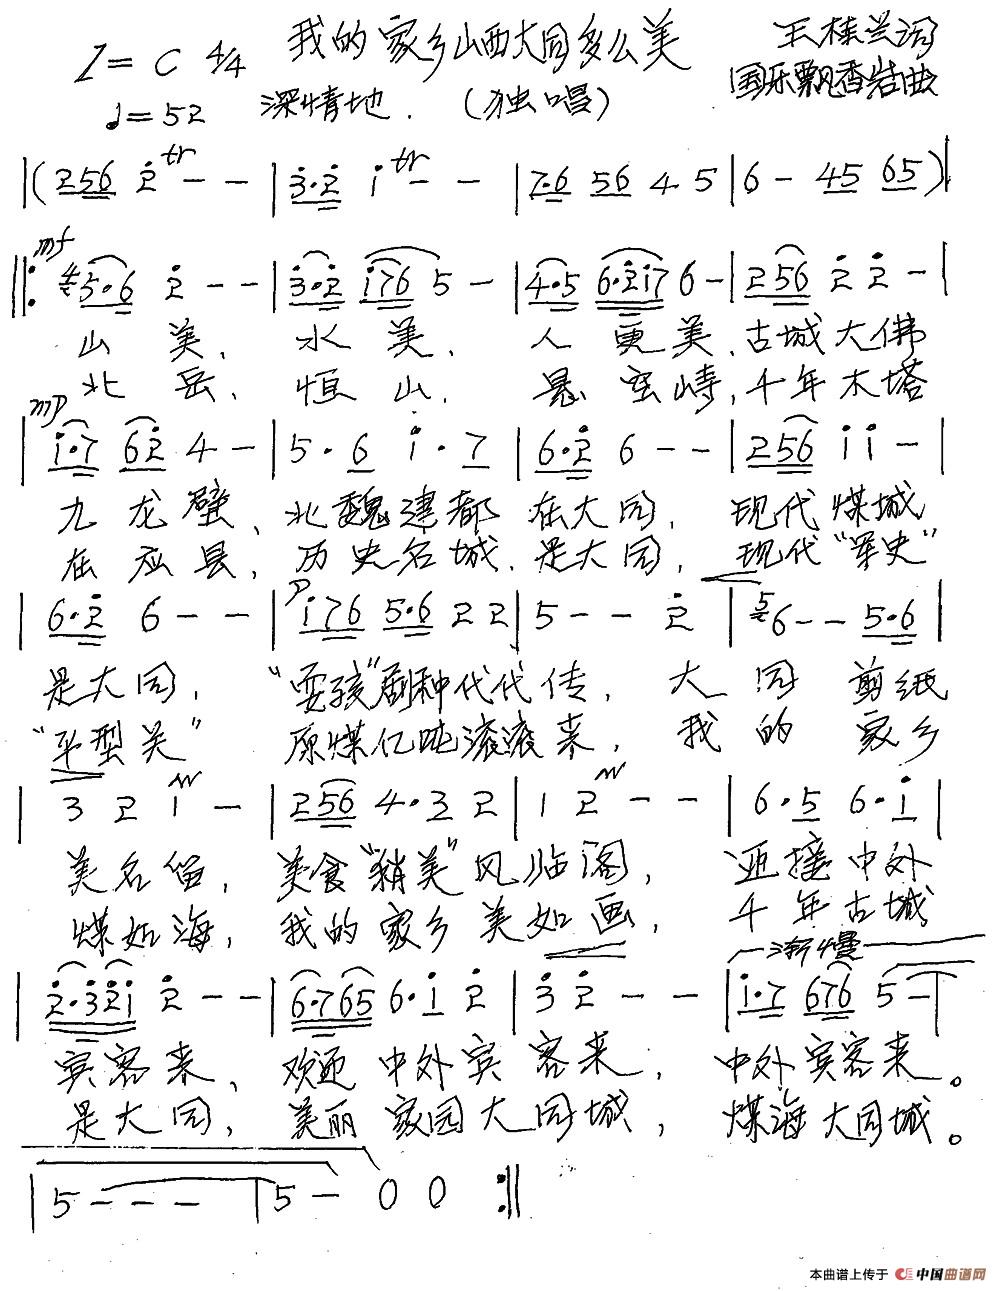 我的家乡山西大同多么美 王桂兰词
1= C 4/4 国乐飘香岩曲
♩=52 深情地. (独唱)
|(256 2 tr - - | 3·2 1 tr - - | 7·6 56 4 5 | 6 - 45 65)|
mf
||: 5·6 2 - - | 3·2 176 5 - | 4·5 6·217 6 - | 256 2 2 - |
山 美、 水 美、 人 更 美、古城大佛
北 岳、 恒 山、 悬 空 寺,千年木塔
mp
| 1·7 62 4 - | 5·6 1·7 | 6·2 6 - - | 256 1 1 - |
九 龙 壁、 北魏建都 在大同, 现代煤城
在 应 县, 历史名城、是大同, 现代“军史”
| 6·2 6 - - | p 176 5·6 2 2 | 5 - - 2 | 5 6 - - 5·6 |
是大同, “耍孩”剧种代代传, 大 同 剪纸
“平型关” 原煤亿吨滚滚来, 我 的 家乡
| 3 2 1 - | 256 4·3 2 | 1 2 - - | 6·5 6·1 |
美名留, 美食“稍美”风临阁, 迎接中外
煤如海, 我的家乡美如画, 千年古城
渐慢
| 2·321 2 - - | 6·765 6·1 2 | 3 2 - - | 1·7 676 5 - |
宾客来、 欢迎中外宾客来, 中外宾客来。
是大同, 美丽家园大同城, 煤海大同城。
| 5 - - - | 5 - 0 0 :||
本曲谱上传于 中国曲谱网